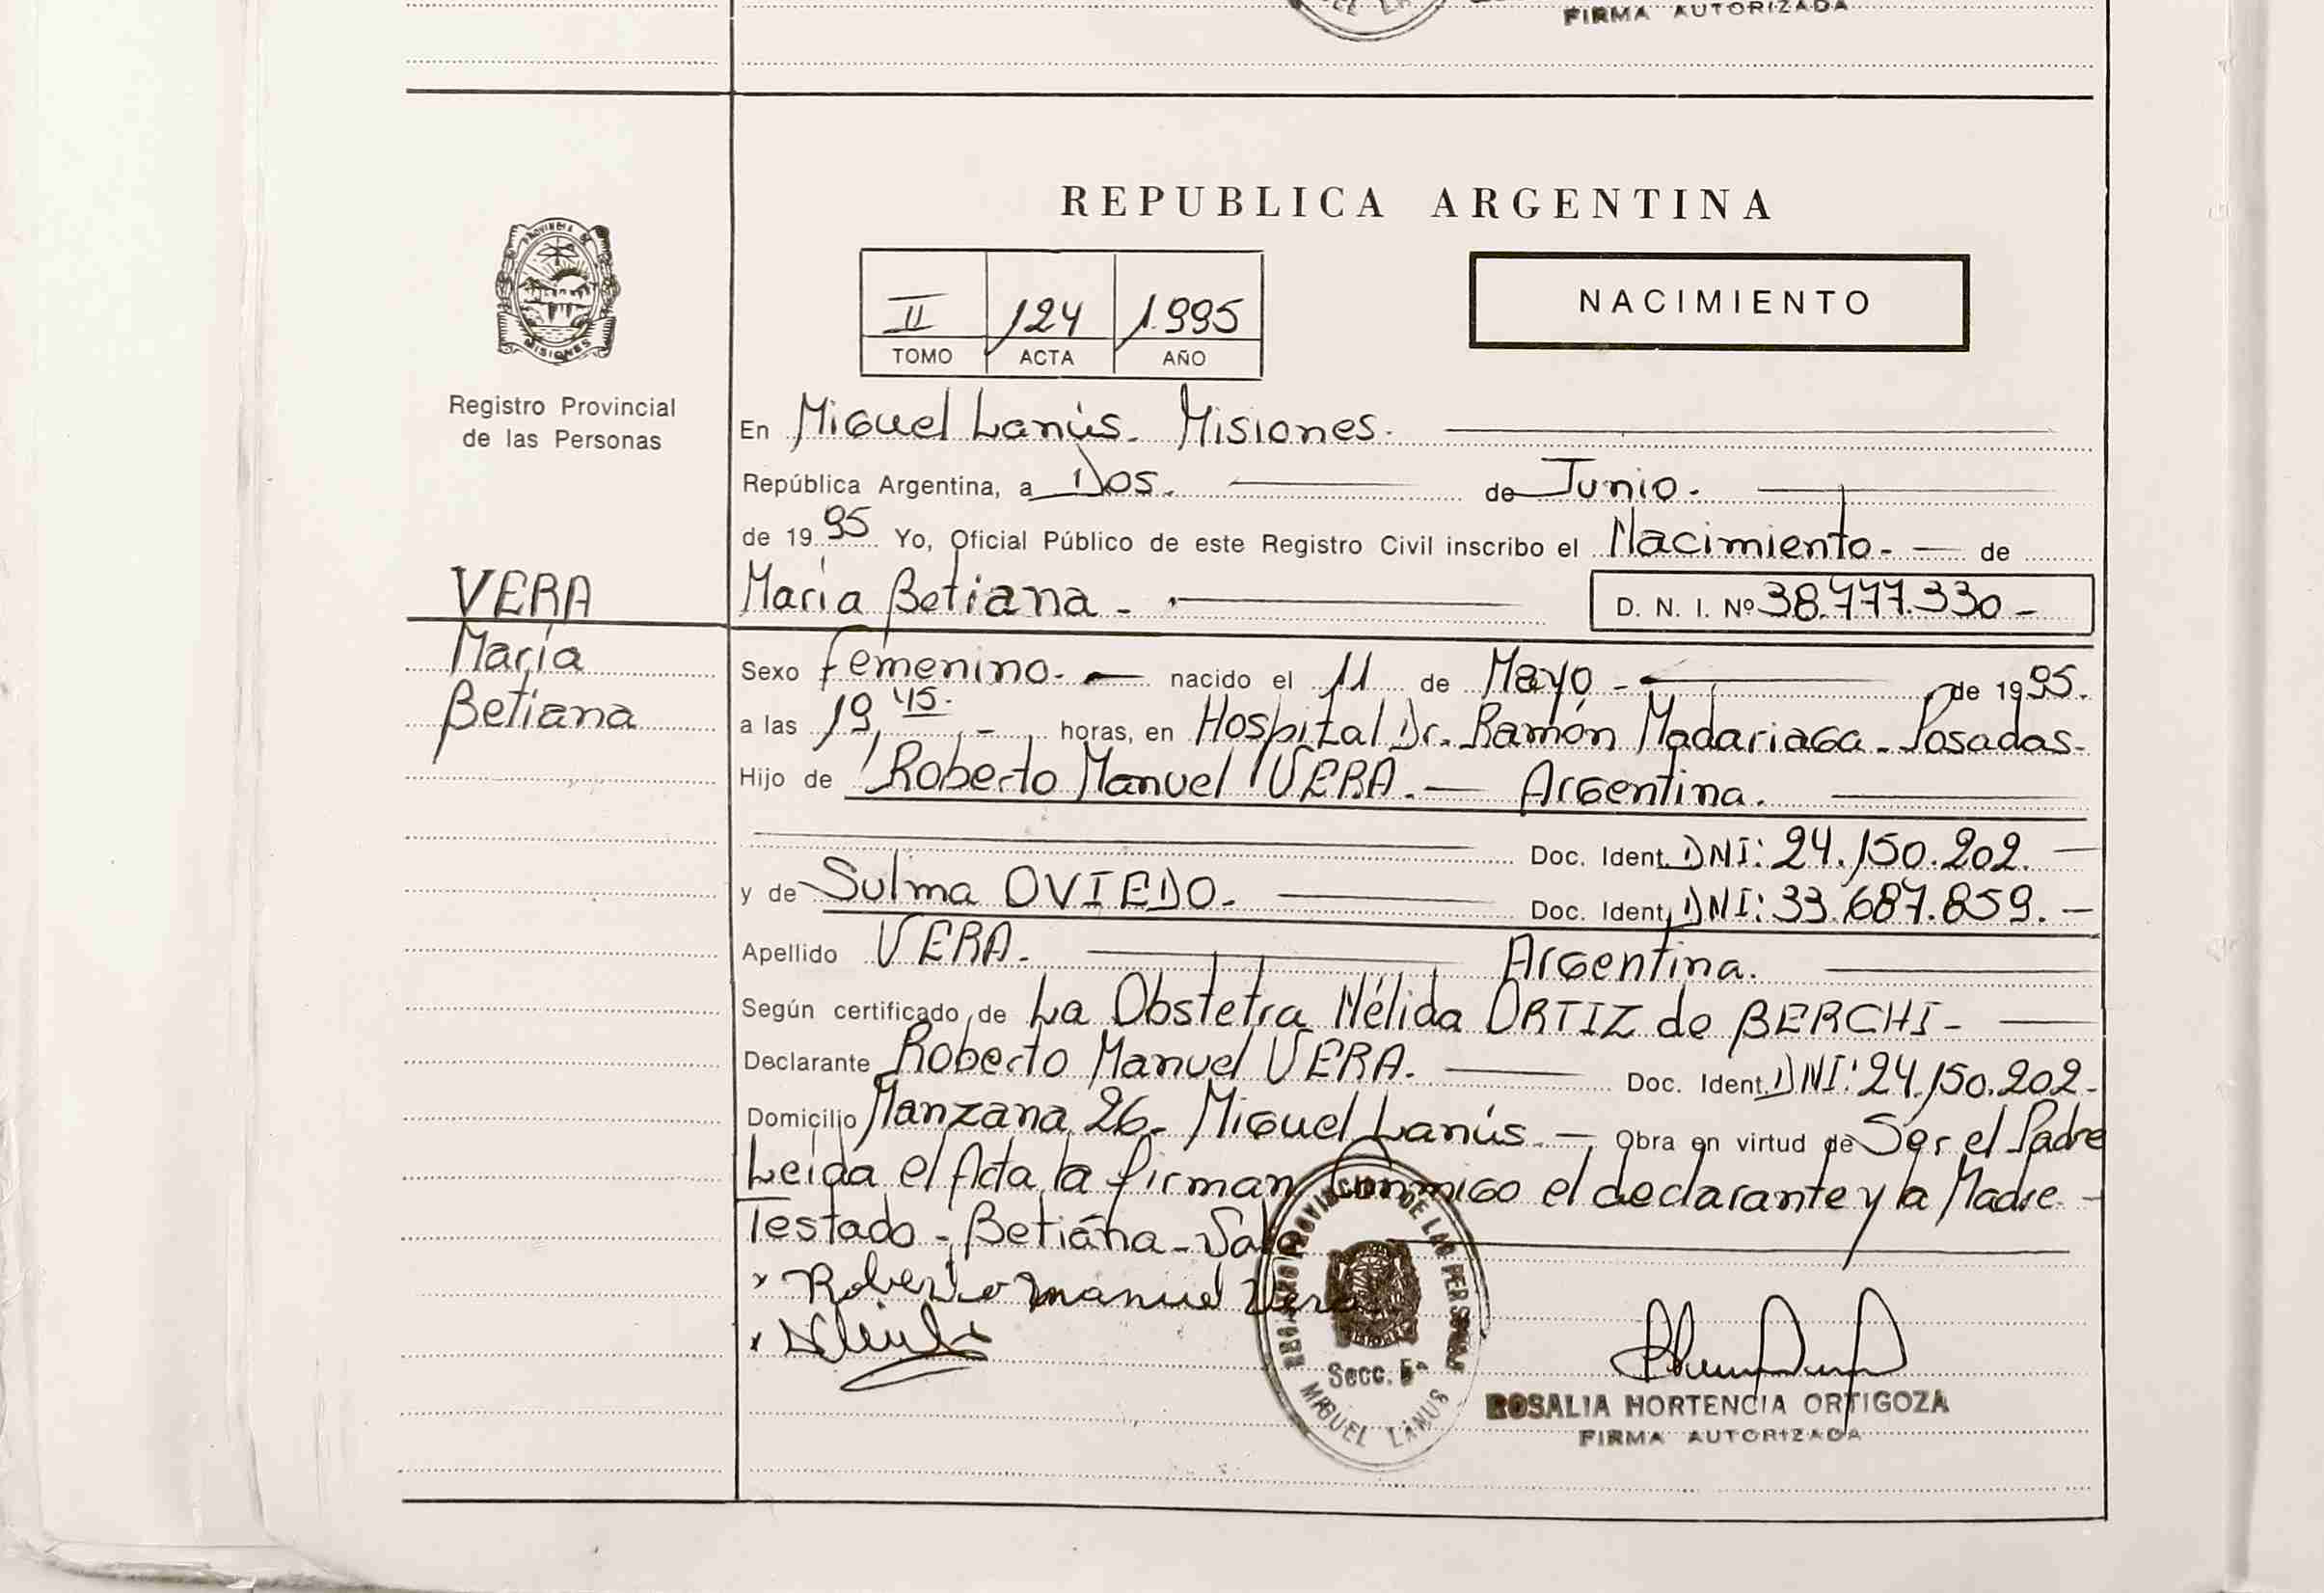 FIRMA AUTORIZADA
REPUBLICA ARGENTINA
PROVINCIA DE
MISIONES
Registro Provincial
de las Personas
II 124 1.995
TOMO ACTA AÑO
NACIMIENTO
En Miguel Lanús. Misiones.
República Argentina, a Dos. de Junio.
de 19 95 Yo, Oficial Público de este Registro Civil inscribo el Nacimiento. - de
VERA
María
Betiana
María Betiana - D. N. I. Nº 38.777.330 -
Sexo femenino. - nacido el 11 de Mayo - de 19 95.
a las 19,45. - horas, en Hospital Dr. Ramón Madariaga - Posadas.
Hijo de Roberto Manuel VERA. - Argentina.
Doc. Ident. DNI: 24.150.202. -
y de Sulma OVIEDO. - Doc. Ident. DNI: 33.687.859. -
Apellido VERA. - Argentina.
Según certificado de La Obstetra Nélida ORTIZ de BERCHI -
Declarante Roberto Manuel VERA. - Doc. Ident. DNI: 24.150.202-
Domicilio Manzana 26- Miguel Lanús. - Obra en virtud de Ser el Padre
Leida el Acta la firman Conmigo el declarante y la Madre. -
Testado - Betiána - Vale
Roberto manuel Vera
REGISTRO PROVINCIAL DE LAS PERSONAS
Secc. 5ª
MIGUEL LANUS
ROSALIA HORTENCIA ORTIGOZA
FIRMA AUTORIZADA